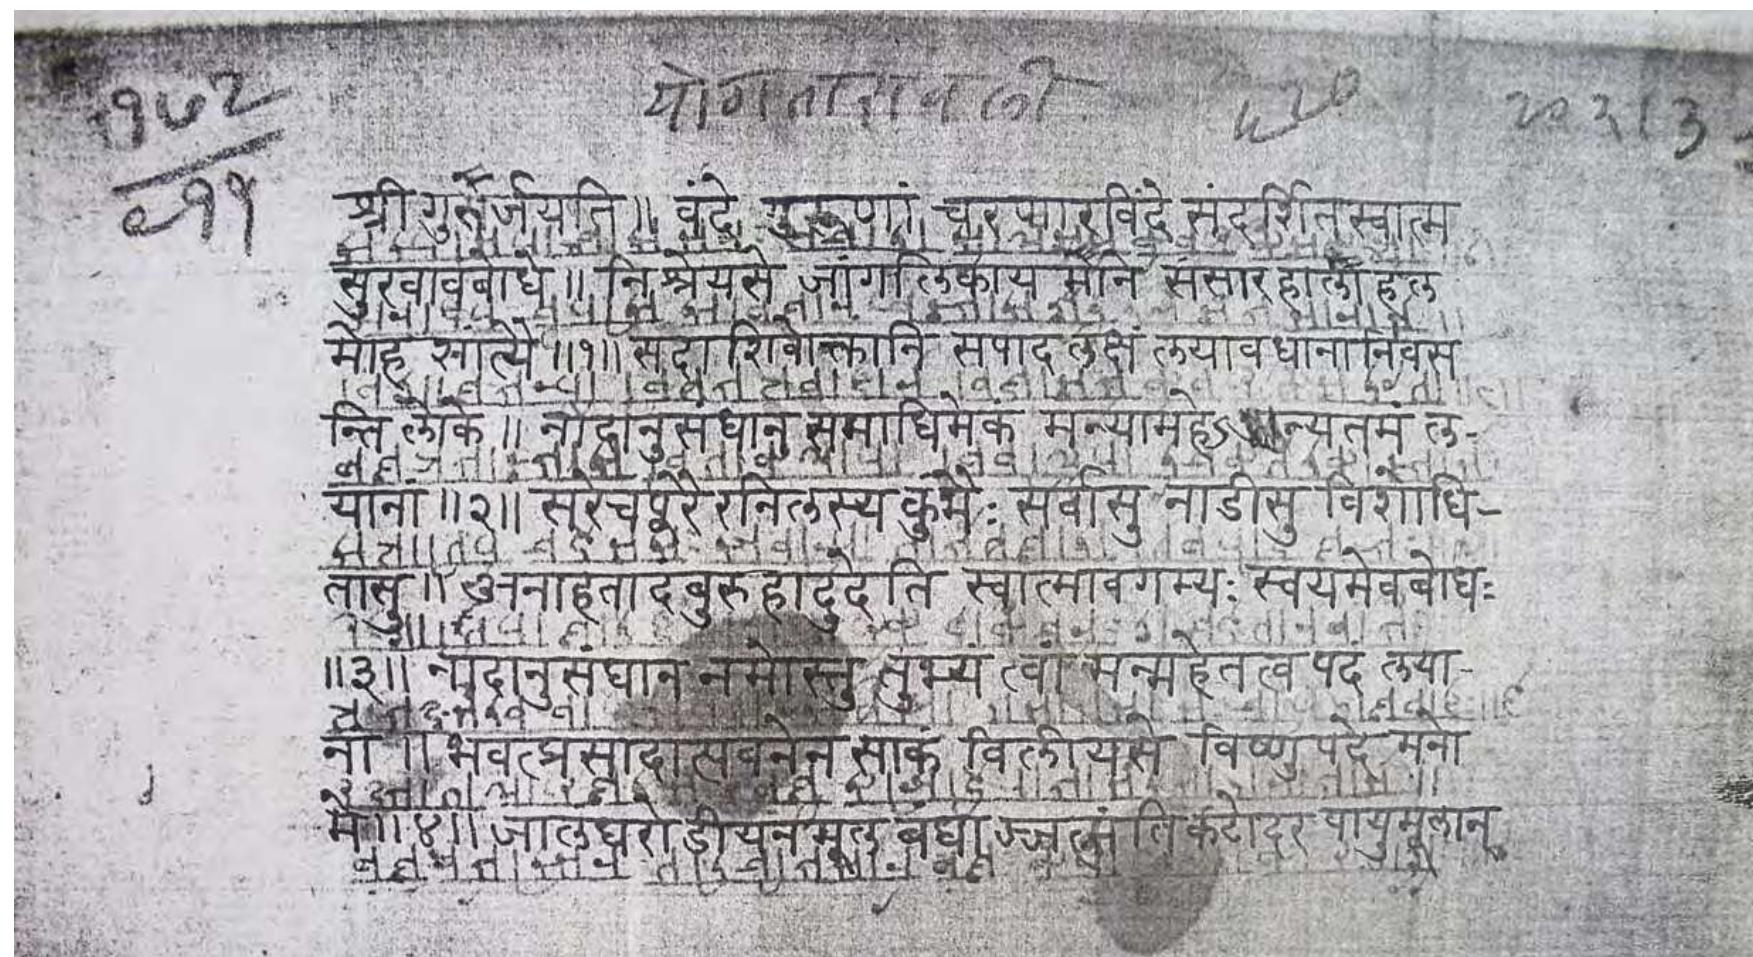 १७२ योगतारावली २०२१३
श्रीगुरुर्जयति॥ वंदे गुरूणां चरणारविंदे संदर्शितस्वात्म
सुखावबोधे॥ निश्रेयसे जांगलिकायमाने संसारहालाहल
मोह सांत्यै॥१॥ सदाशिवोक्तानि सपादलक्षं लयावधानानि वस
न्ति लोके॥ नादानुसंधान समाधिमेकं मन्यामहेऽ न्यतमं ल-
यानां॥२॥ सरेचपूरैरनिलस्य कुंभैः सर्वासु नाडीसु विशोधि-
तासु॥ अनाहतादंबुरुहादुदेति स्वात्मावगम्यः स्वयमेव बोधः
॥३॥ नादानुसंधान नमोस्तु तुभ्यं त्वां मन्महे तत्व पदं लया-
नां॥ भवत्प्रसादात्पवनेन साकं विलीयसे विष्णुपदे मनो
मे॥४॥ जालंधरोडीयनमूल बंधाज्जल्पंति कंठोदर पायुमूलान्